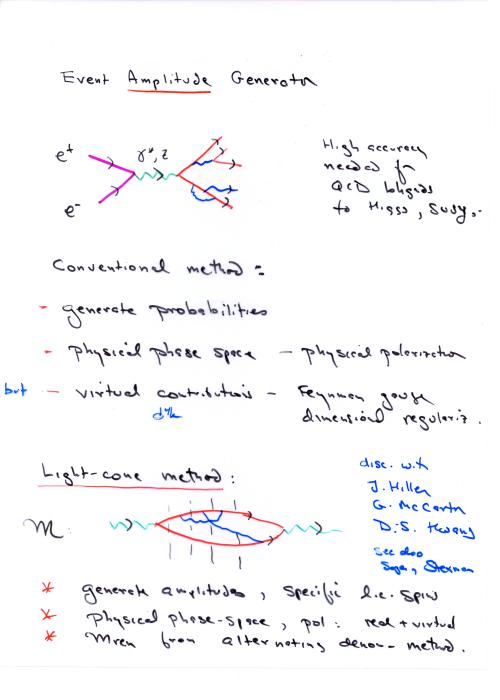 Event Amplitude Generator
e⁺
γ*, Z
e⁻
High accuracy
needed for
QCD bkgds
to Higgs, Susy,..
Conventional method :
- generate probabilities
- physical phase space - physical polarization
but - virtual contributions - Feynman gauge
dimensional regulariz.
Light-cone method :
disc. with
J. Hiller
G. McCartor
D.S. Hwang
see also
Soper, Sterman
M:
* generate amplitudes, specific l.c. spin
* physical phase-space, pol: real + virtual
* Mren from alternating denom- method.